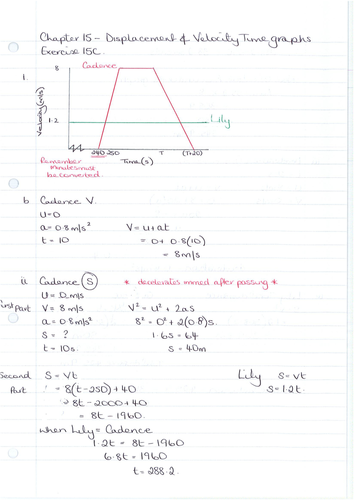 Chapter 15 - Displacement & Velocity Time graphs
Exercise 15C.
1.
Cadence
8
Velocity (m/s)
1.2
Lily
240 250 T (T+20)
Time (s)
Remember
minutes must
be converted
b Cadence V.
U=0
a = 0.8m/s² V = u+at
t = 10 = 0+ 0.8(10)
= 8m/s
ii Cadence (S) * decelerates immed after passing *
First part
U = 0m/s
V = 8 m/s V² = U² + 2as
a = 0.8m/s² 8² = 0² + 2(0.8)s.
S = ? 1.6s = 64
t = 10s. S = 40m
Second Part
S = Vt Lily S = Vt
= 8(t-250)+40 S = 1.2t.
= 8t - 2000+40
= 8t - 1960.
when Lily = Cadence
1.2t = 8t - 1960
6.8t = 1960
t = 288.2.